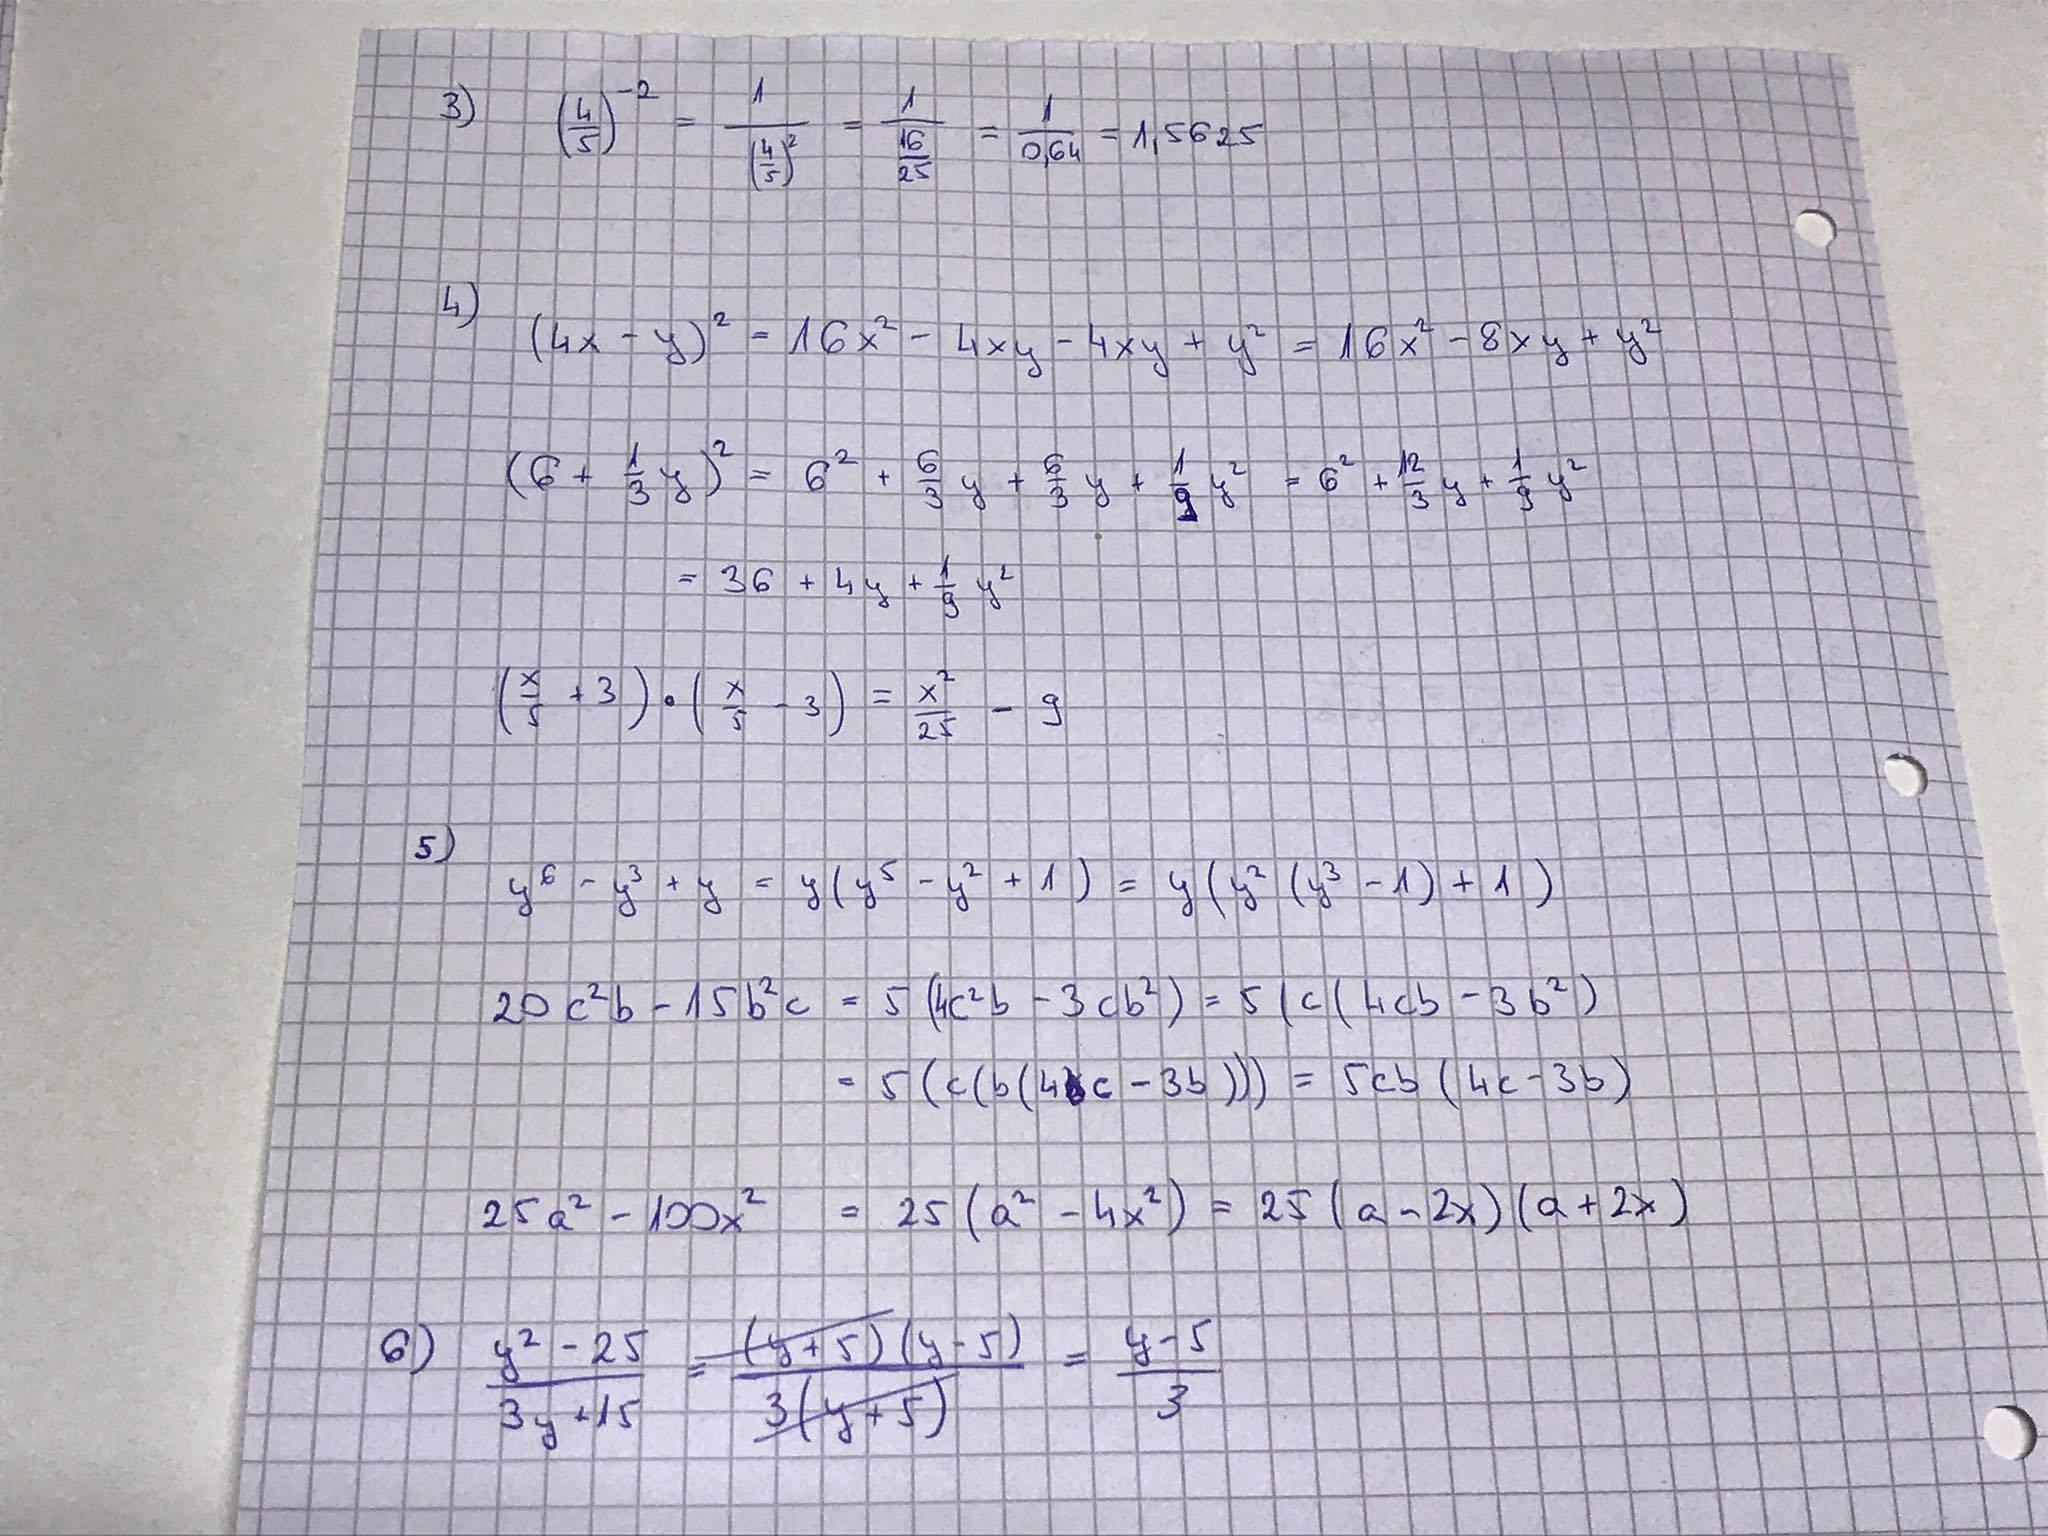 3) (4/5)^-2 = 1/(4/5)² = 1/(16/25) = 1/0,64 = 1,5625
4)
(4x - y)² = 16x² - 4xy - 4xy + y² = 16x² - 8xy + y²
(6 + 1/3 y)² = 6² + 6/3 y + 6/3 y + 1/9 y² = 6² + 12/3 y + 1/9 y²
= 36 + 4y + 1/9 y²
(x/5 + 3) • (x/5 - 3) = x²/25 - 9
5)
y⁶ - y³ + y = y(y⁵ - y² + 1) = y(y²(y³ - 1) + 1)
20c²b - 15b²c = 5(4c²b - 3cb²) = 5(c(4cb - 3b²)
= 5(c(b(4c - 3b))) = 5cb(4c - 3b)
25a² - 100x² = 25(a² - 4x²) = 25(a - 2x)(a + 2x)
6) (y² - 25)/(3y + 15) = (y + 5)(y - 5)/3(y + 5) = (y - 5)/3